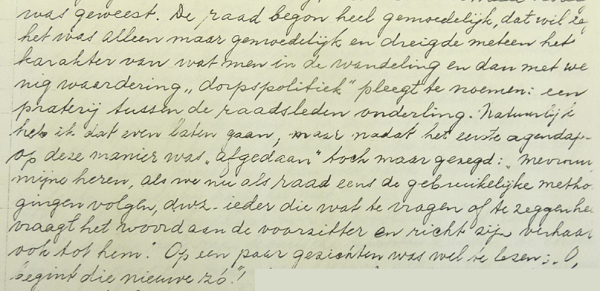 was geweest. De raad begon heel gemoedelijk, dat wil ze
het was alleen maar gemoedelijk en dreigde meteen het
karakter van wat men in de wandeling en dan met we
nig waardering „dorpspolitiek" pleegt te noemen: een
praterij tussen de raadsleden onderling. Natuurlijk
heb ik dat even laten gaan, maar nadat het eerste agendap-
op deze manier was „afgedaan" toch maar gezegd: „mevrouw
mijne heren, als we nu als raad eens de gebruikelijke metho
gingen volgen, dwz- ieder die wat te vragen of te zeggen hee
vraagt het woord aan de voorzitter en richt zijn verhaal
tot hem." Op een paar gezichten was wel te lezen: „O,
begint die nieuwe zó"!